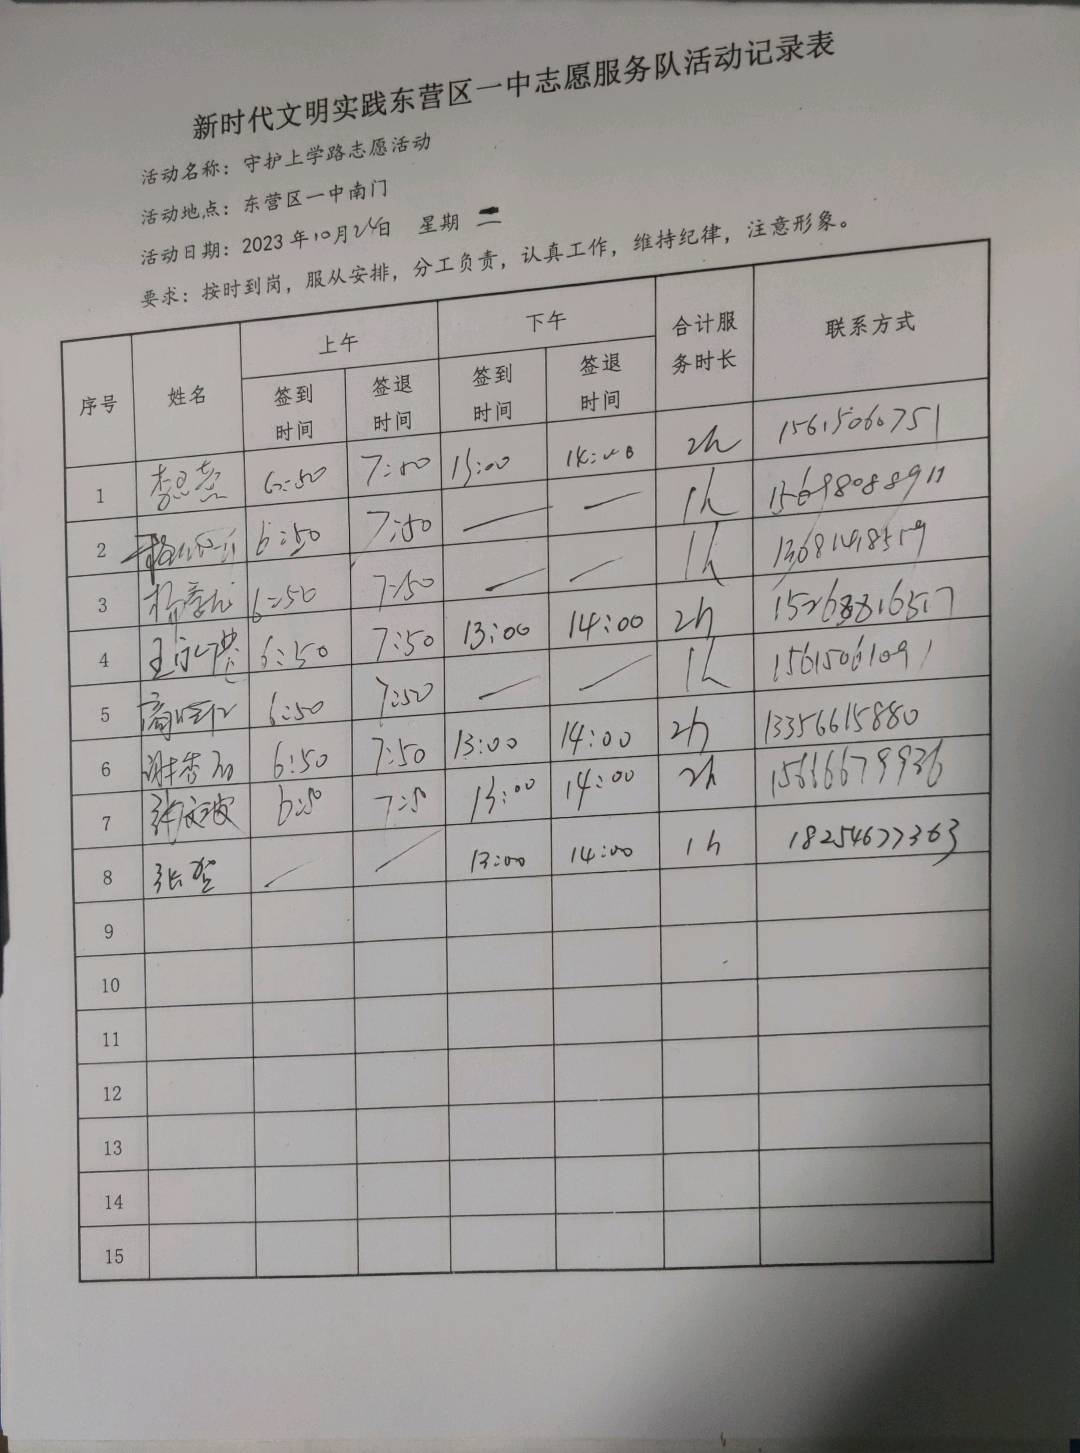 新时代文明实践东营区一中志愿服务队活动记录表
活动名称：守护上学路志愿活动
活动地点：东营区一中南门
活动日期：2023年10月24日 星期 二
要求：按时到岗，服从安排，分工负责，认真工作，维持纪律，注意形象。
序号 姓名 上午 下午 合计服务时长 联系方式
签到时间 签退时间 签到时间 签退时间
1 6:50 7:50 13:00 14:00 2h 15615060751
2 6:50 7:50 — — 1h 15698088911
3 6:50 7:50 — — 1h
4 6:50 7:50 13:00 14:00 2h
5 6:50 7:50 — — 1h 15615061091
6 6:50 7:50 13:00 14:00 2h 13356615880
7 6:50 7:50 13:00 14:00 2h 15666679936
8 — — 13:00 14:00 1h 18254677363
9
10
11
12
13
14
15